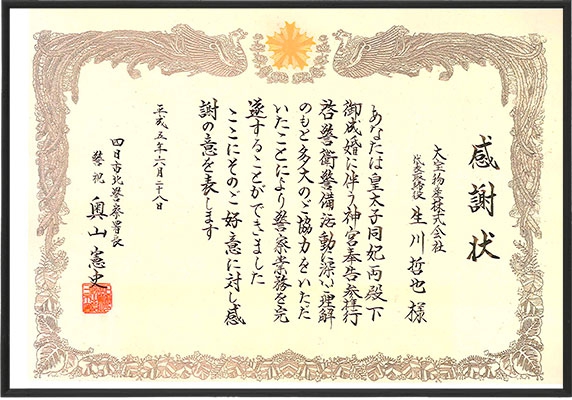 感謝状
大宝物産株式会社
代表取締役 生川哲也様
あなたは皇太子同妃両殿下
御成婚に伴う神宮奉告参拝行
啓警衛警備活動に深い理解
のもと多大のご協力をいただ
いたことにより警察業務を完
遂することができました
ここにそのご好意に対し感
謝の意を表します
平成五年六月二十八日
四日市北警察署長
警視 奥山憲史